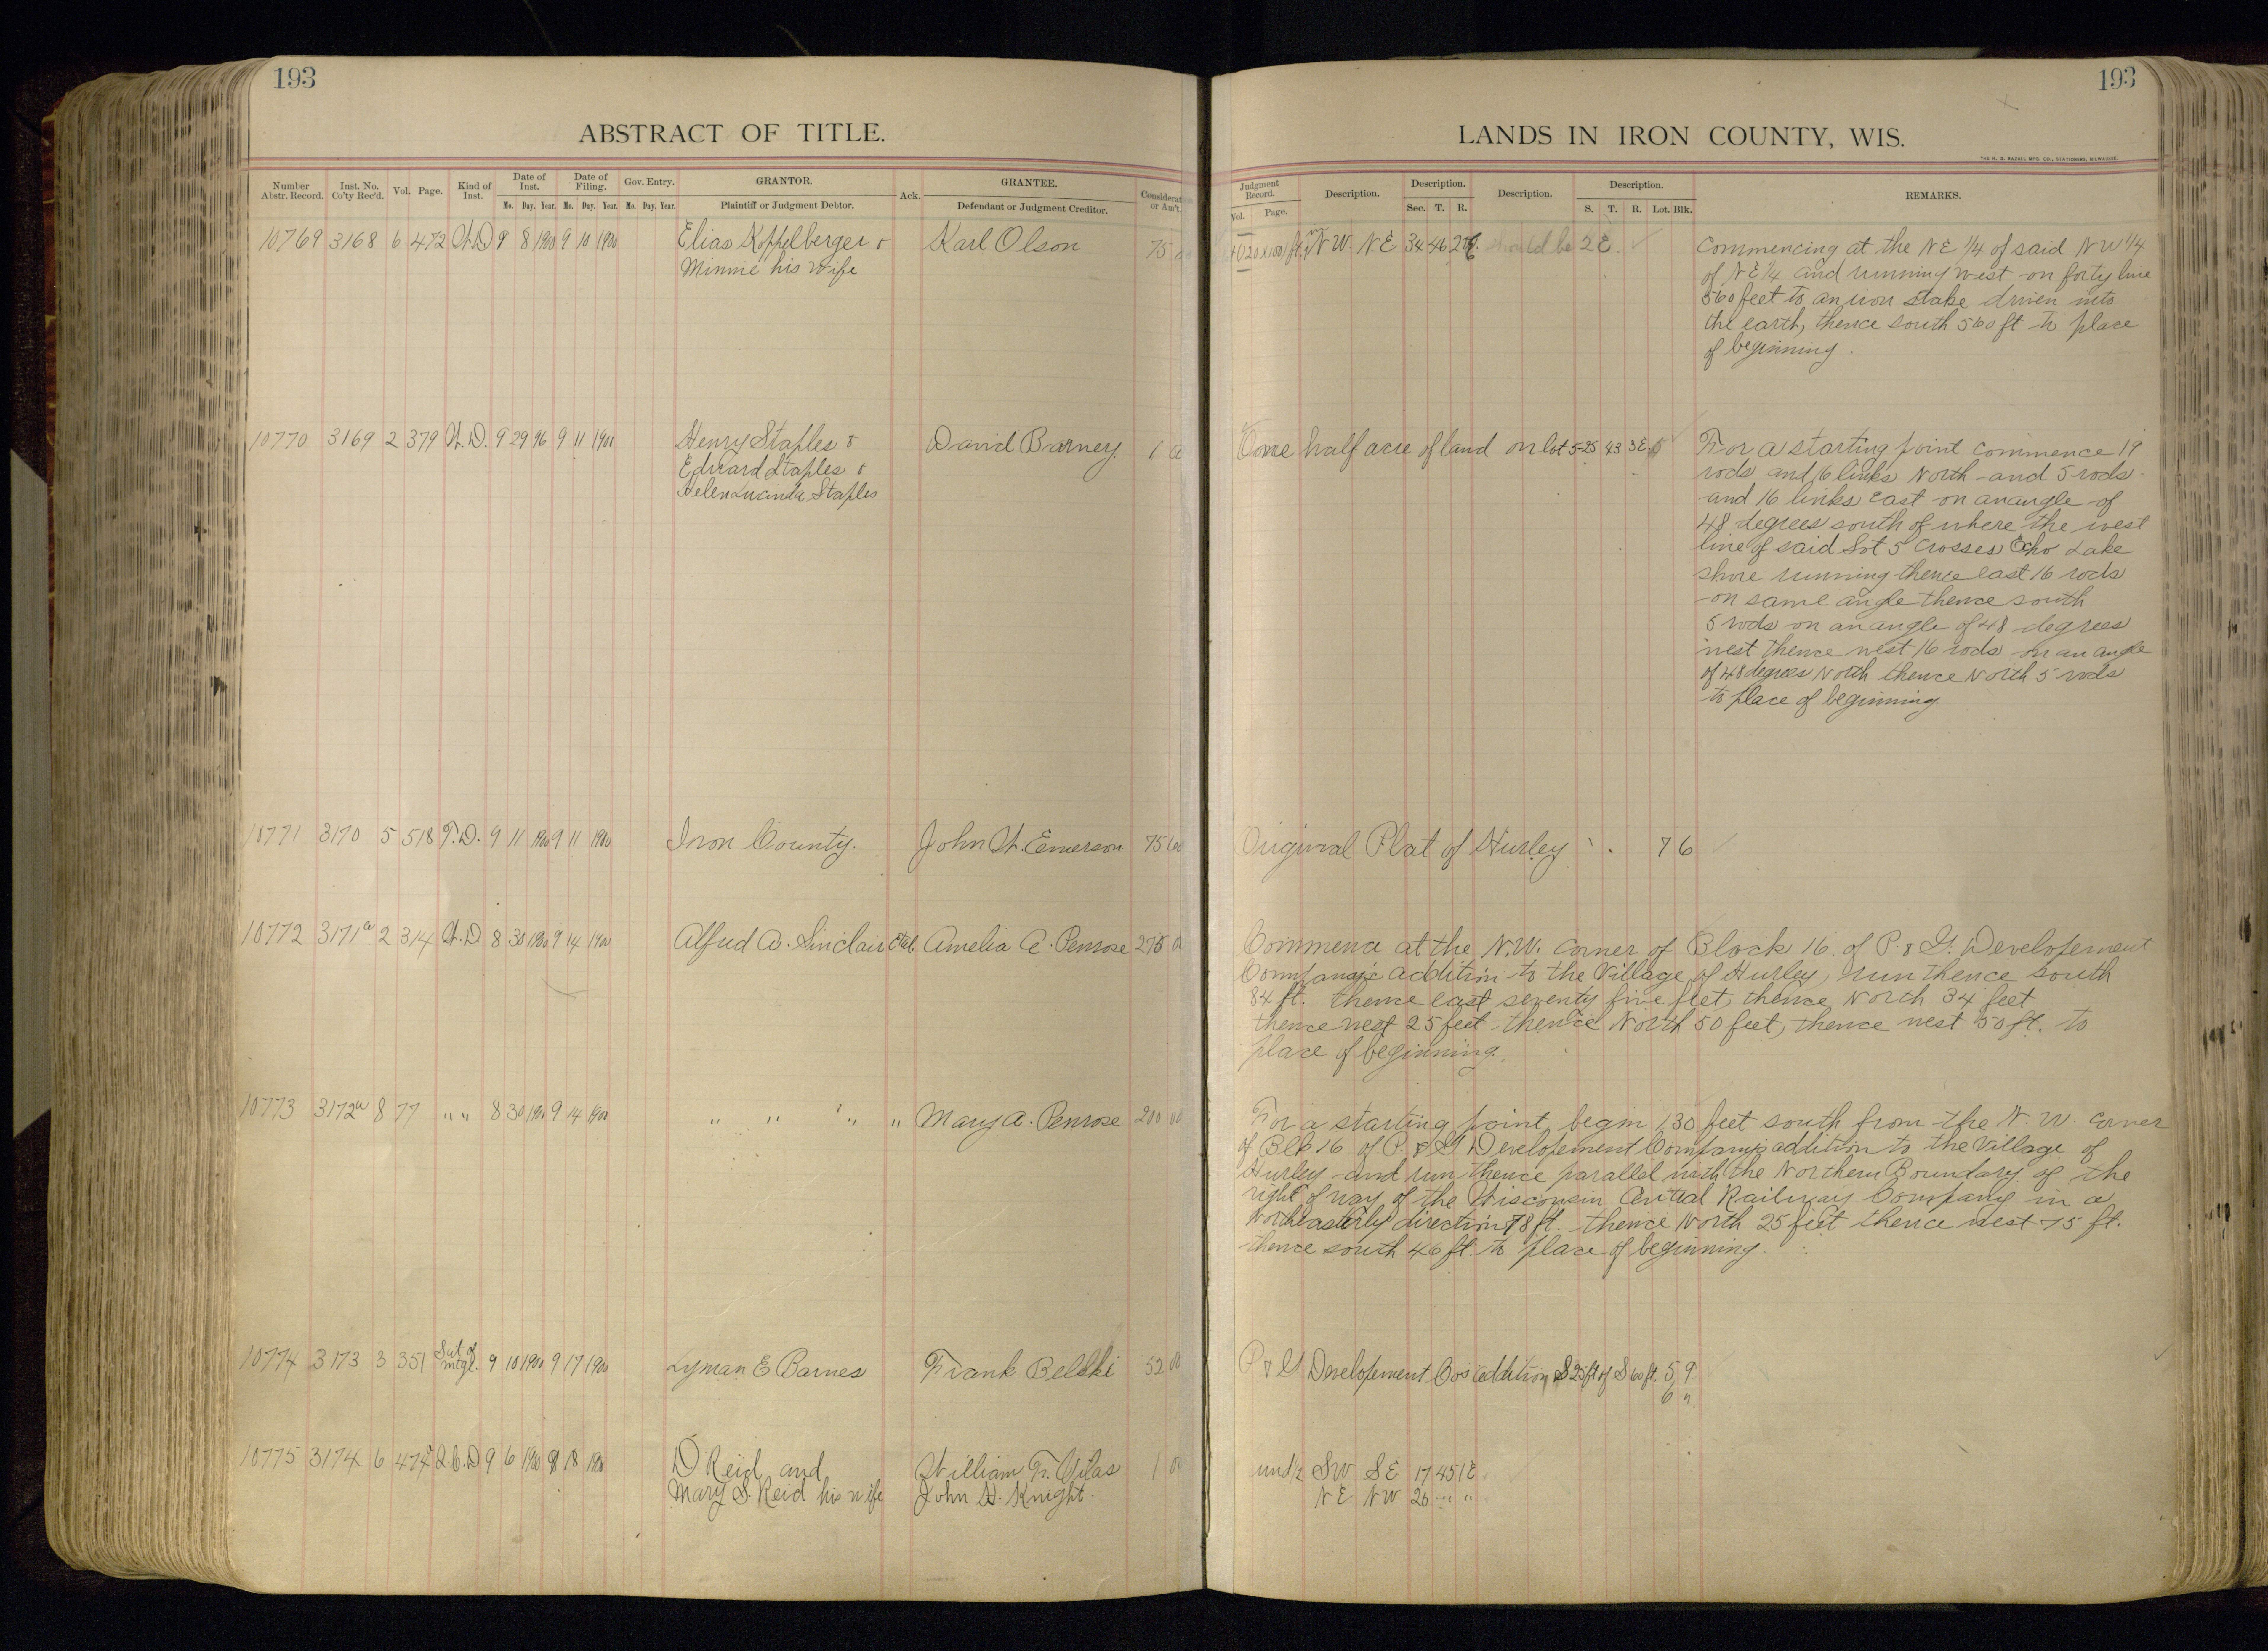 193
ABSTRACT OF TITLE.
Number Abstr. Record. Inst. No. Co'ty Rec'd. Vol. Page. Kind of Inst. Date of Inst. Date of Filing. Gov. Entry. GRANTOR. Ack. GRANTEE. Considerat or Am't.
Mo. Day. Year. Mo. Day. Year. Mo. Day. Year. Plaintiff or Judgment Debtor. Defendant or Judgment Creditor.
10769 3168 6 472 W.D 9 8 1900 9 10 1900 Elias Koffelberger & Karl Olson 75
Minnie his wife
10770 3169 2 379 W.D. 9 29 96 9 11 1900 Henry Staples & David Barney 1 00
Edward Staples &
Helen Lucinda Staples
10771 3170 5 518 T.D. 9 11 1900 9 11 1900 Iron County. John W. Emerson 75 00
10772 3171a 2 314 W.D 8 30 1900 9 14 1900 Alfred A. Sinclair Et al. Amelia A. Penrose 275 00
10773 3172a 8 77 " " 8 30 1900 9 14 1900 " " " " Mary A. Penrose 200 00
10774 3173 3 351 Sat of mtge. 9 10 1900 9 17 1900 Lyman E Barnes Frank Belski 52 00
10775 3174 6 474 Q.C.D 9 6 1900 9 18 1900 D Reid and William F. Vilas 1 00
Mary S. Reid his wife John H. Knight.
193
LANDS IN IRON COUNTY, WIS.
THE H. G. RAZALL MFG. CO., STATIONERS, MILWAUKEE.
Judgment Record. Description. Description. Description. Description. REMARKS.
Vol. Page. Sec. T. R. S. T. R. Lot. Blk.
(20x100) ft. NW NE 34 46 2 should be 2 E. Commencing at the NE 1/4 of said NW 1/4
of NE 1/4 and running west on forty line
560 feet to an iron stake driven into
the earth, thence south 560 ft to place
of beginning.
One half acre of land on lot 5-25 43 3E 5 For a starting point commence 19
rods and 16 links North and 5 rods
and 16 links East on an angle of
48 degrees south of where the west
line of said Lot 5 crosses Echo Lake
shore running thence east 16 rods
on same angle thence south
5 rods on an angle of 48 degrees
west thence west 16 rods on an angle
of 48 degrees North thence North 5 rods
to place of beginning.
Original Plat of Hurley 7 6
Commence at the N.W. corner of Block 16 of P & G. Developement
Company's addition to the Village of Hurley, run thence south
84 ft. thence east seventy five feet, thence North 34 feet
thence west 25 feet thence North 50 feet, thence west 50 ft. to
place of beginning.
For a starting point, begin 130 feet south from the N. W. corner
of Blk 16 of P. & G. Developement Company's addition to the Village of
Hurley and run thence parallel with the Northern Boundary of the
right of way of the Wisconsin Central Railway Company in a
Northeasterly direction 78 ft. thence North 25 feet thence west 75 ft.
thence south 46 ft. to place of beginning.
P & G. Developement Co's addition S 25 ft of S 60 ft. 5 9
6 "
und 1/2 SW SE 17 45 1E
NE NW 26 " "